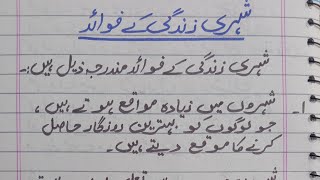 شہری زندگی کے فوائد
شہری زندگی کے فوائد مندرجہ ذیل ہیں:۔
1- شہروں میں زیادہ مواقع ہوتے ہیں،
جو لوگوں کو بہترین روزگار حاصل
کرنے کا موقع دیتے ہیں۔